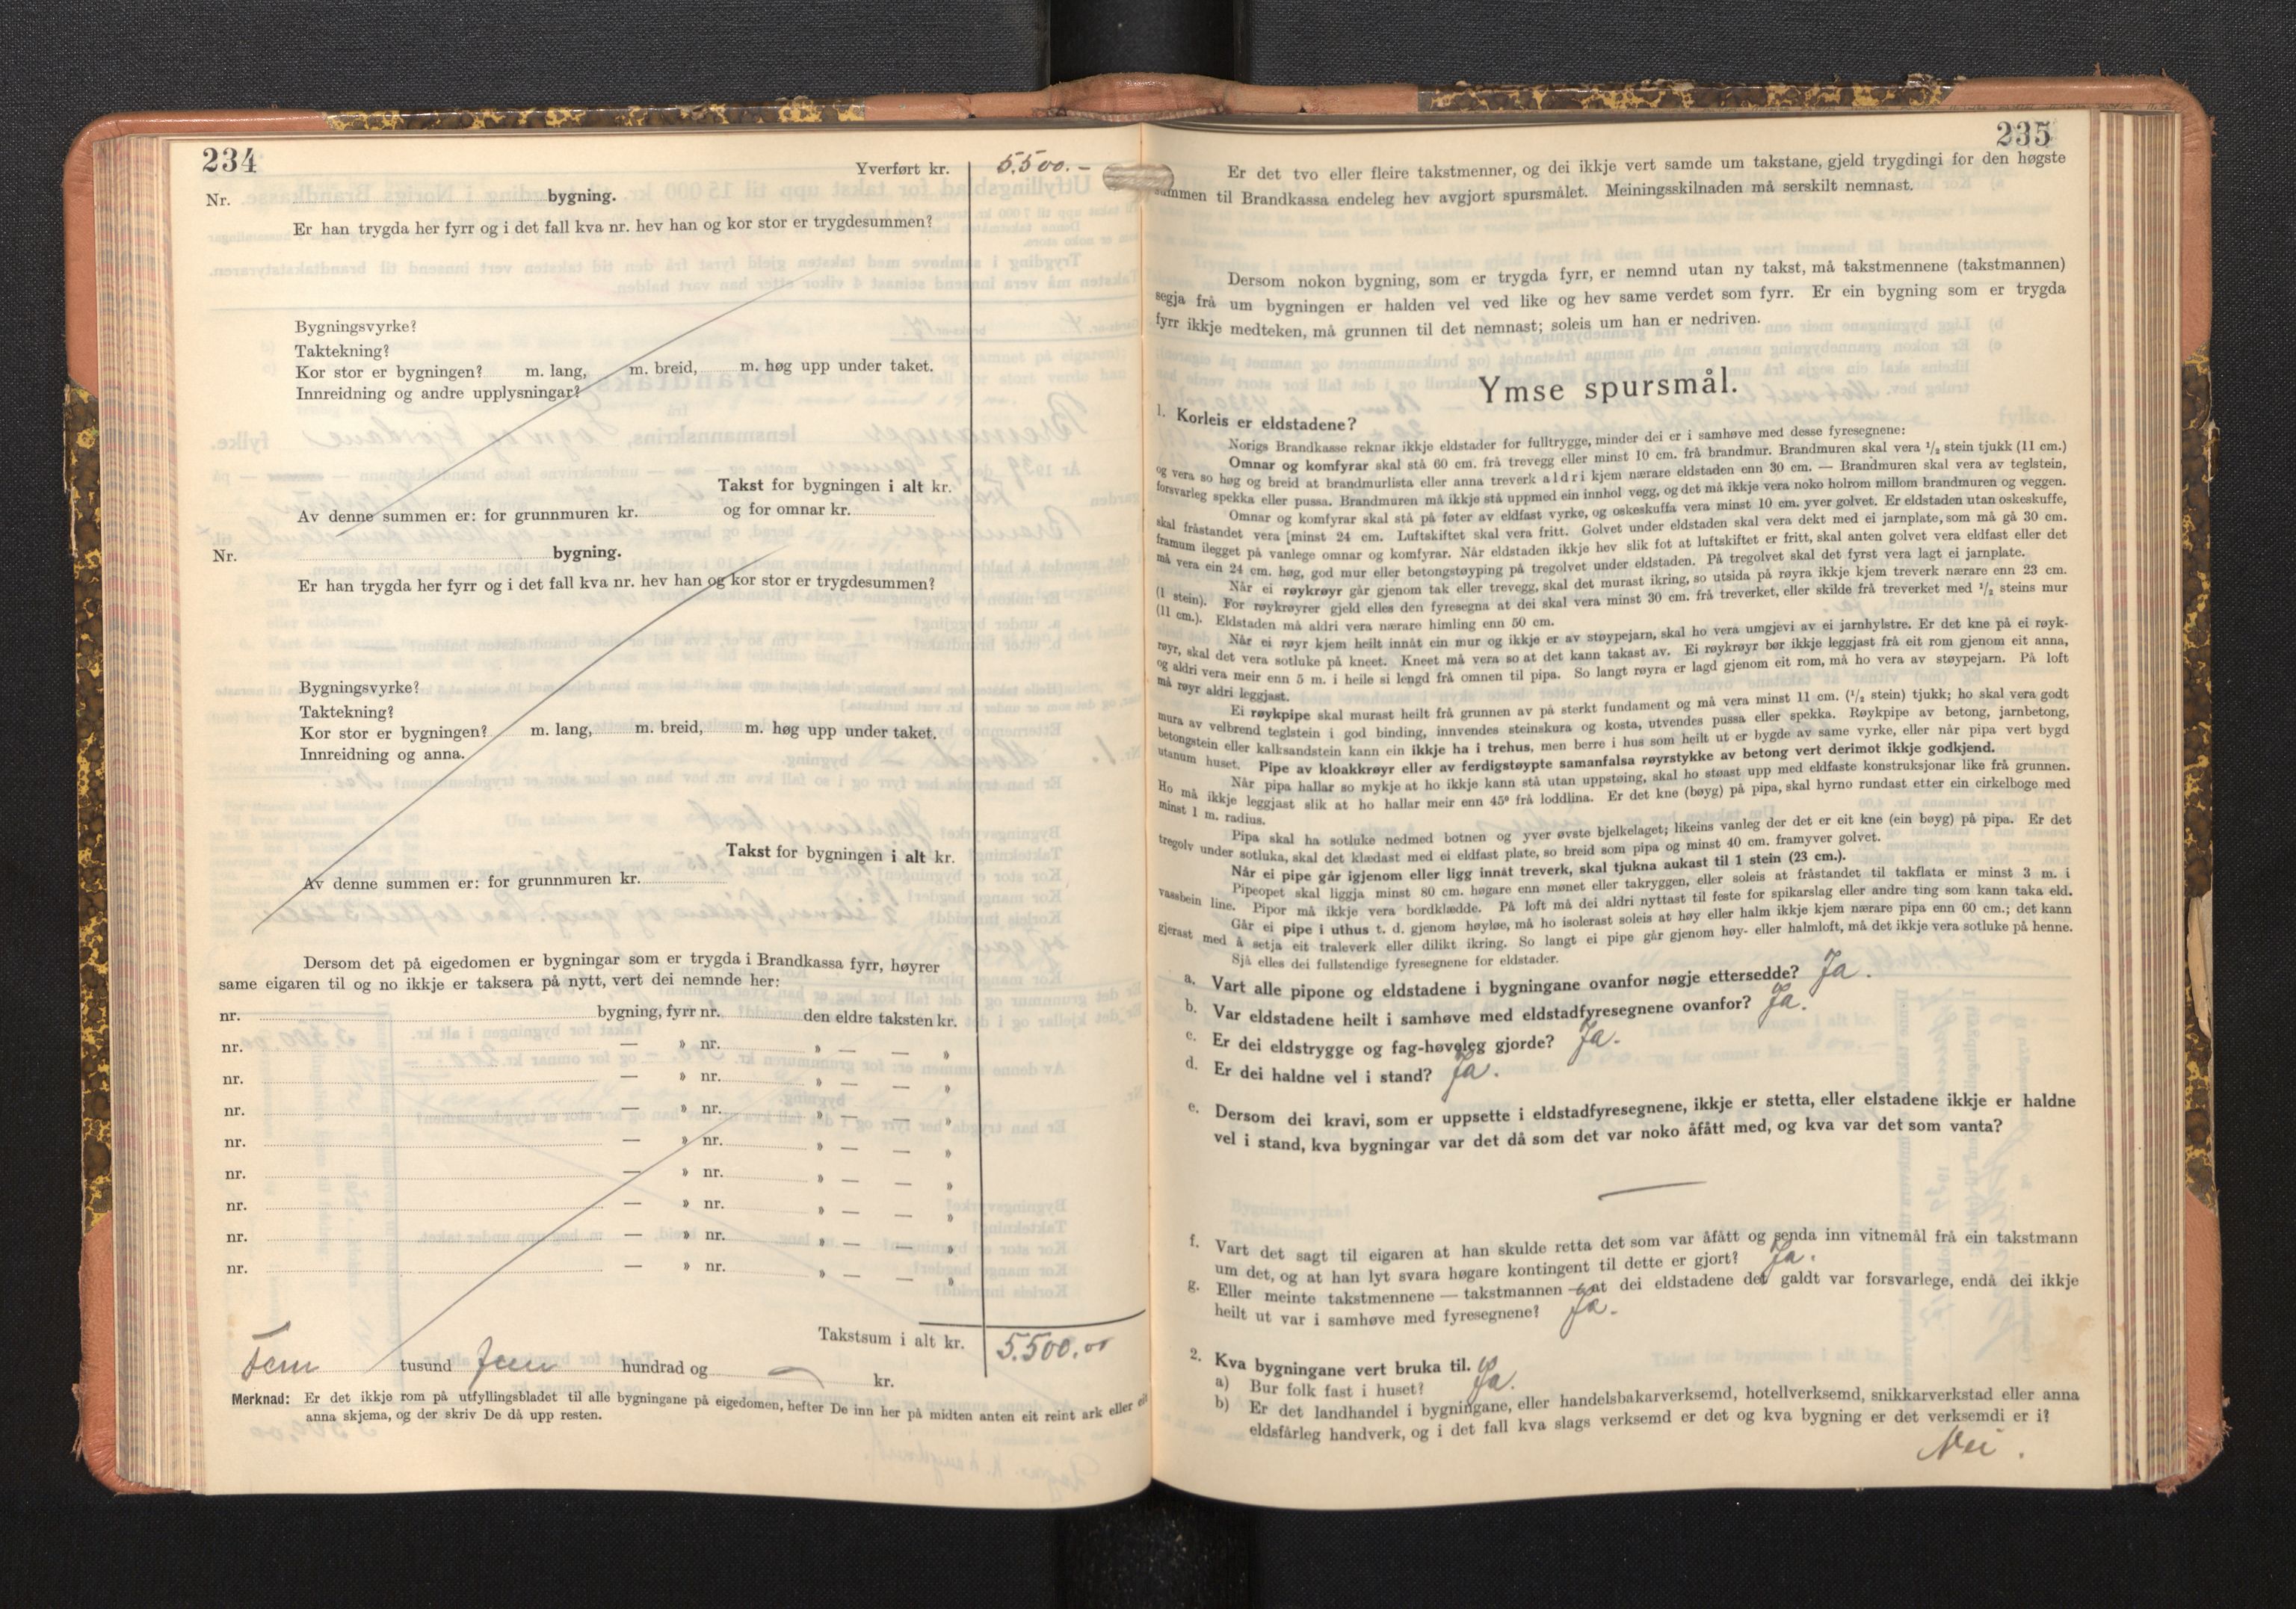 234
Yverført kr. 5.500.-
Nr. bygning.
Er han trygda her fyrr og i det fall kva nr. hev han og kor stor er trygdesummen?
Bygningsvyrke?
Taktekning?
Kor stor er bygningen? m. lang, m. breid, m. høg upp under taket.
Innreidning og andre upplysningar?
Takst for bygningen i alt kr.
Av denne summen er: for grunnmuren kr. og for omnar kr.
Nr. bygning.
Er han trygda her fyrr og i det fall kva nr. hev han og kor stor er trygdesummen?
Bygningsvyrke?
Taktekning?
Kor stor er bygningen? m. lang, m. breid, m. høg upp under taket.
Innreidning og anna.
Takst for bygningen i alt kr.
Av denne summen er: for grunnmuren kr.
Dersom det på eigedomen er bygningar som er trygda i Brandkassa fyrr, høyrer
same eigaren til og no ikkje er taksera på nytt, vert dei nemnde her:
nr. bygning, fyrr nr. den eldre taksten kr.
nr. — » nr. » — — »
nr. — » nr. » — — »
nr. — » nr. » — — »
nr. — » nr. » — — »
nr. — » nr. » — — »
nr. — » nr. » — — »
nr. — » nr. » — — »
nr. — » nr. » — — »
Takstsum i alt kr. 5.500.00
Fem tusund fem hundrad og — kr.
Merknad: Er det ikkje rom på utfyllingsbladet til alle bygningane på eigedomen, hefter De inn her på midten anten eit reint ark eller eit
anna skjema, og der skriv De då upp resten.
235
Er det tvo eller fleire takstmenner, og dei ikkje vert samde um takstane, gjeld trygdingi for den høgste
summen til Brandkassa endeleg hev avgjort spursmålet. Meiningsskilnaden må serskilt nemnast.
Dersom nokon bygning, som er trygda fyrr, er nemnd utan ny takst, må takstmennene (takstmannen)
segja frå um bygningen er halden vel ved like og hev same verdet som fyrr. Er ein bygning som er trygda
fyrr ikkje medteken, må grunnen til det nemnast; soleis um han er nedriven.
Ymse spursmål.
1. Korleis er eldstadene?
Norigs Brandkasse reknar ikkje eldstader for fulltrygge, minder dei er i samhøve med desse fyresegnene:
Omnar og komfyrar skal stå 60 cm. frå trevegg eller minst 10 cm. frå brandmur. Brandmuren skal vera 1/2 stein tjukk (11 cm.)
og vera so høg og breid at brandmurlista eller anna treverk aldri kjem nærare eldstaden enn 30 cm. — Brandmuren skal vera av teglstein,
forsvarleg spekka eller pussa. Brandmuren må ikkje stå uppmed ein innhol vegg, og det må ikkje vera noko holrom millom brandmuren og veggen.
Omnar og komfyrar skal stå på føter av eldfast vyrke, og oskeskuffa vera minst 10 cm. yver golvet. Er eldstaden utan oskeskuffe,
skal fråstandet vera minst 24 cm. Luftskiftet skal vera fritt. Golvet under eldstaden skal vera dekt med ei jarnplate, som må gå 30 cm.
framum ilegget på vanlege omnar og komfyrar. Når eldstaden ikkje hev slik fot at luftskiftet er fritt, skal anten golvet vera eldfast eller det
må vera ein 24 cm. høg, god mur eller betongstøyping på tregolvet under eldstaden. På tregolvet skal det fyrst vera lagt ei jarnplate.
Når ei røykrøyr går gjenom tak eller trevegg, skal det murast ikring, so utsida på røyra ikkje kjem treverk nærare enn 23 cm.
(1 stein). For røykrøyrer gjeld elles den fyresegna at dei skal vera minst 30 cm. frå treverket, eller skilde frå treverket med 1/2 steins mur
(11 cm.). Eldstaden må aldri vera nærare himling enn 50 cm.
Når ei røyr kjem heilt innåt ein mur og ikkje er av støypejarn, skal ho vera umgjevi av ei jarnhylstre. Er det kne på ei røyk-
røyr, skal det vera sotluke på kneet. Kneet må vera so at det kann takast av. Ei røykrøyr bør ikkje leggjast frå eit rom gjenom eit anna,
og aldri vera meir enn 5 m. i heile si lengd frå omnen til pipa. So langt røyra er lagd gjenom eit rom, må ho vera av støypejarn. På loft
må røyr aldri leggjast.
Ei røykpipe skal murast heilt frå grunnen av på sterkt fundament og må vera minst 11 cm. (1/2 stein) tjukk; ho skal vera godt
mura av velbrend teglstein i god binding, innvendes steinskura og kosta, utvendes pussa eller spekka. Røykpipe av betong, jarnbetong,
betongstein eller kalksandstein kann ein ikkje ha i trehus, men berre i hus som heilt ut er bygde av same vyrke, eller når pipa vert bygd
utanum huset. Pipe av kloakkrøyr eller av ferdigstøypte samanfalsa røyrstykke av betong vert derimot ikkje godkjend.
Når pipa hallar so mykje at ho ikkje kann stå utan uppstøing, skal ho støast upp med eldfaste konstruksjonar like frå grunnen.
Ho må ikkje leggjast slik at ho hallar meir enn 45° frå loddlina. Er det kne (bøyg) på pipa, skal hyrno rundast etter ein cirkelboge med
minst 1 m. radius.
Pipa skal ha sotluke nedmed botnen og yver øvste bjelkelaget; likeins vanleg der det er eit kne (ein bøyg) på pipa. Er det
tregolv under sotluka, skal det klædast med ei eldfast plate, so breid som pipa og minst 40 cm. framyver golvet.
Når ei pipe går igjenom eller ligg innåt treverk, skal tjukna aukast til 1 stein (23 cm.).
Pipeopet skal liggja minst 80 cm. høgare enn mønet eller takryggen, eller soleis at fråstandet til takflata er minst 3 m. i
vassbein line. Pipor må ikkje vera bordklædde. På loft må dei aldri nyttast til feste for spikarslag eller andre ting som kann taka eld.
Går ei pipe i uthus t. d. gjenom høyløe, må ho isolerast soleis at høy eller halm ikkje kjem nærare pipa enn 60 cm.; det kann
gjerast med å setja eit traleverk eller dilikt ikring. So langt ei pipe går gjenom høy- eller halmloft, må det ikkje vera sotluke på henne.
Sjå elles dei fullstendige fyresegnene for eldstader.
a. Vart alle pipone og eldstadene i bygningane ovanfor nøgje ettersedde? Ja.
b. Var eldstadene heilt i samhøve med eldstadfyresegnene ovanfor? Ja.
c. Er dei eldstrygge og fag-høveleg gjorde? Ja.
d. Er dei haldne vel i stand? Ja.
e. Dersom dei kravi, som er uppsette i eldstadfyresegnene, ikkje er stetta, eller elstadene ikkje er haldne
vel i stand, kva bygningar var det då som det var noko åfått med, og kva var det som vanta?
—
f. Vart det sagt til eigaren at han skulde retta det som var åfått og senda inn vitnemål frå ein takstmann
um det, og at han lyt svara høgare kontingent til dette er gjort? Ja.
g. Eller meinte takstmennene — takstmannen — at dei eldstadene det galdt var forsvarlege, endå dei ikkje
heilt ut var i samhøve med fyresegnene? Ja.
2. Kva bygningane vert bruka til.
a) Bur folk fast i huset? Ja.
b) Er det landhandel i bygningane, eller handelsbakarverksemd, hotellverksemd, snikkarverkstad eller anna
eldsfårleg handverk, og i det fall kva slags verksemd er det og kva bygning er det verksemdi er i?
Nei.